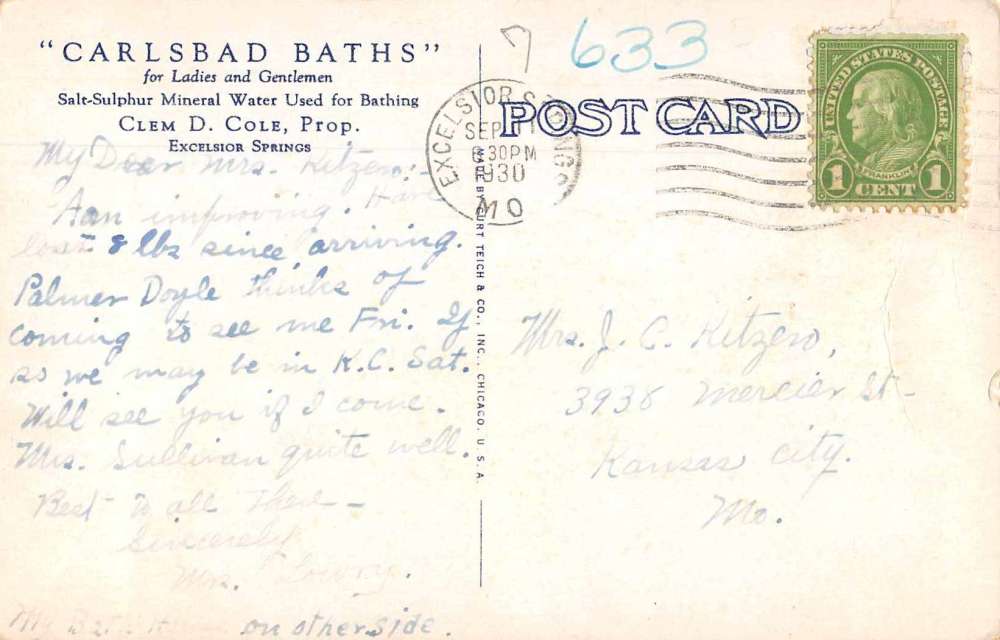 "CARLSBAD BATHS"
for Ladies and Gentlemen
Salt-Sulphur Mineral Water Used for Bathing
CLEM D. COLE, Prop.
EXCELSIOR SPRINGS
My Dear Mrs. Kitzero:-
Aan improving. Have
lost 8 lbs since arriving.
Palmer Doyle thinks of
coming to see me Fri. If
so we may be in K.C. Sat.
Will see you if I come.
Mrs. Sullivan quite well.
Best to all there-
Sincerely
Mrs. Lowry.
My on other side.
MADE BY CURT TEICH & CO., INC., CHICAGO, U.S.A.
7 633
POST CARD
EXCELSIOR SPRINGS
SEP 11
6 30PM
1930
MO
UNITED STATES POSTAGE
FRANKLIN
1 CENT 1
Mrs. J. C. Kitzero,
3938 Mercier St-
Kansas City.
Mo.